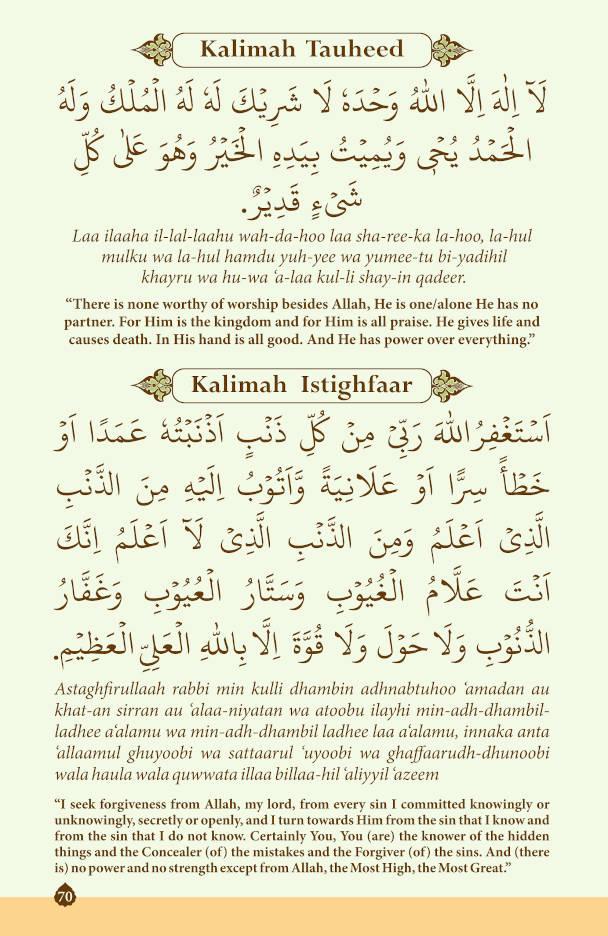 Kalimah Tauheed
لَآ اِلٰهَ اِلَّا اللّٰهُ وَحْدَهٗ لَا شَرِيْكَ لَهٗ لَهُ الْمُلْكُ وَلَهُ
الْحَمْدُ يُحْيٖ وَيُمِيْتُ بِيَدِهِ الْخَيْرُ وَهُوَ عَلٰى كُلِّ
شَىْءٍ قَدِيْرٌ.
Laa ilaaha il-lal-laahu wah-da-hoo laa sha-ree-ka la-hoo, la-hul
mulku wa la-hul hamdu yuh-yee wa yumee-tu bi-yadihil
khayru wa hu-wa ‘a-laa kul-li shay-in qadeer.
“There is none worthy of worship besides Allah, He is one/alone He has no
partner. For Him is the kingdom and for Him is all praise. He gives life and
causes death. In His hand is all good. And He has power over everything.”
Kalimah Istighfaar
اَسْتَغْفِرُ اللّٰهَ رَبِّىْ مِنْ كُلِّ ذَنْبٍ اَذْنَبْتُهٗ عَمَدًا اَوْ
خَطْأً سِرًّا اَوْ عَلَانِيَةً وَّاَتُوْبُ اِلَيْهِ مِنَ الذَّنْبِ
الَّذِىْ اَعْلَمُ وَمِنَ الذَّنْبِ الَّذِىْ لَآ اَعْلَمُ اِنَّكَ
اَنْتَ عَلَّامُ الْغُيُوْبِ وَسَتَّارُ الْعُيُوْبِ وَغَفَّارُ
الذُّنُوْبِ وَلَا حَوْلَ وَلَا قُوَّةَ اِلَّا بِاللّٰهِ الْعَلِىِّ الْعَظِيْمِ.
Astaghfirullaah rabbi min kulli dhambin adhnabtuhoo ‘amadan au
khat-an sirran au ‘alaa-niyatan wa atoobu ilayhi min-adh-dhambil-
ladhee a‘alamu wa min-adh-dhambil ladhee laa a‘alamu, innaka anta
‘allaamul ghuyoobi wa sattaarul ‘uyoobi wa ghaffaarudh-dhunoobi
wala haula wala quwwata illaa billaa-hil ‘aliyyil ‘azeem
“I seek forgiveness from Allah, my lord, from every sin I committed knowingly or
unknowingly, secretly or openly, and I turn towards Him from the sin that I know and
from the sin that I do not know. Certainly You, You (are) the knower of the hidden
things and the Concealer (of) the mistakes and the Forgiver (of) the sins. And (there
is) no power and no strength except from Allah, the Most High, the Most Great.”
70